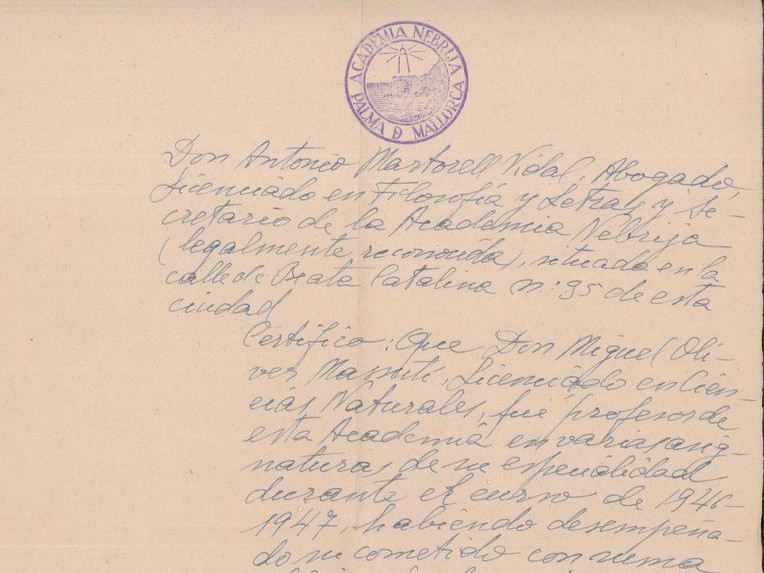 ACADEMIA NEBRIJA
PALMA D MALLORCA
Don Antonio Martorell Vidal, Abogado,
Licenciado en Filosofía y Letras y Se-
cretario de la Academia Nebrija
(legalmente reconocida), situada en la
calle de Beata Catalina nº 35 de esta
ciudad
Certifico: Que Don Miguel Oli-
ver Massutí, Licenciado en Cien-
cias Naturales, fué profesor de
esta Academia en varias asig-
naturas de su especialidad
durante el curso de 1946-
1947, habiendo desempeña-
do su cometido con suma